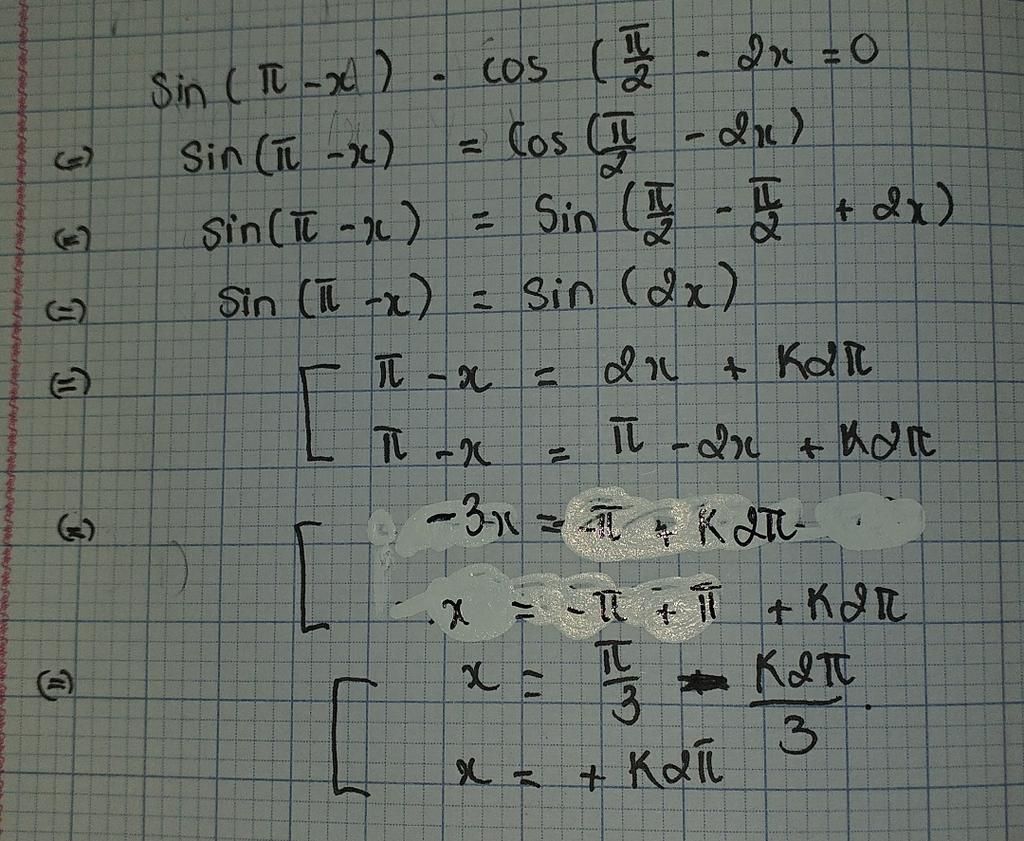 sin(π - x) - cos (π/2 - 2x = 0
(=) sin(π - x) = cos(π/2 - 2x)
(=) sin(π - x) = sin (π/2 - π/2 + 2x)
(=) sin (π - x) = sin (2x)
(=) [ π - x = 2x + K2π
π - x = π - 2x + K2π
(=) [ -3x = -π + K2π
x = -π + π + K2π
(=) [ x = π/3 - K2π/3.
x = + K2π